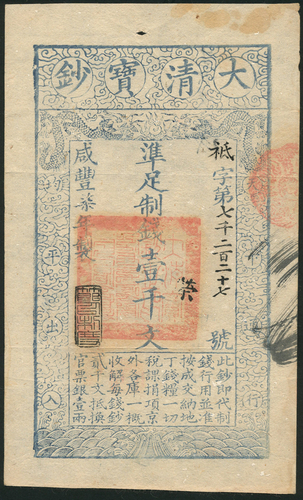 大清寶鈔
祇字第七千二百二十七號
榮
準足制錢壹千文
咸豐柒年製
行
平出入
此鈔即代制
錢行用並准
按成交納地
丁錢糧一切
稅課捐項京
外各庫一概
收解每錢鈔
貳千文抵換
官票銀壹兩